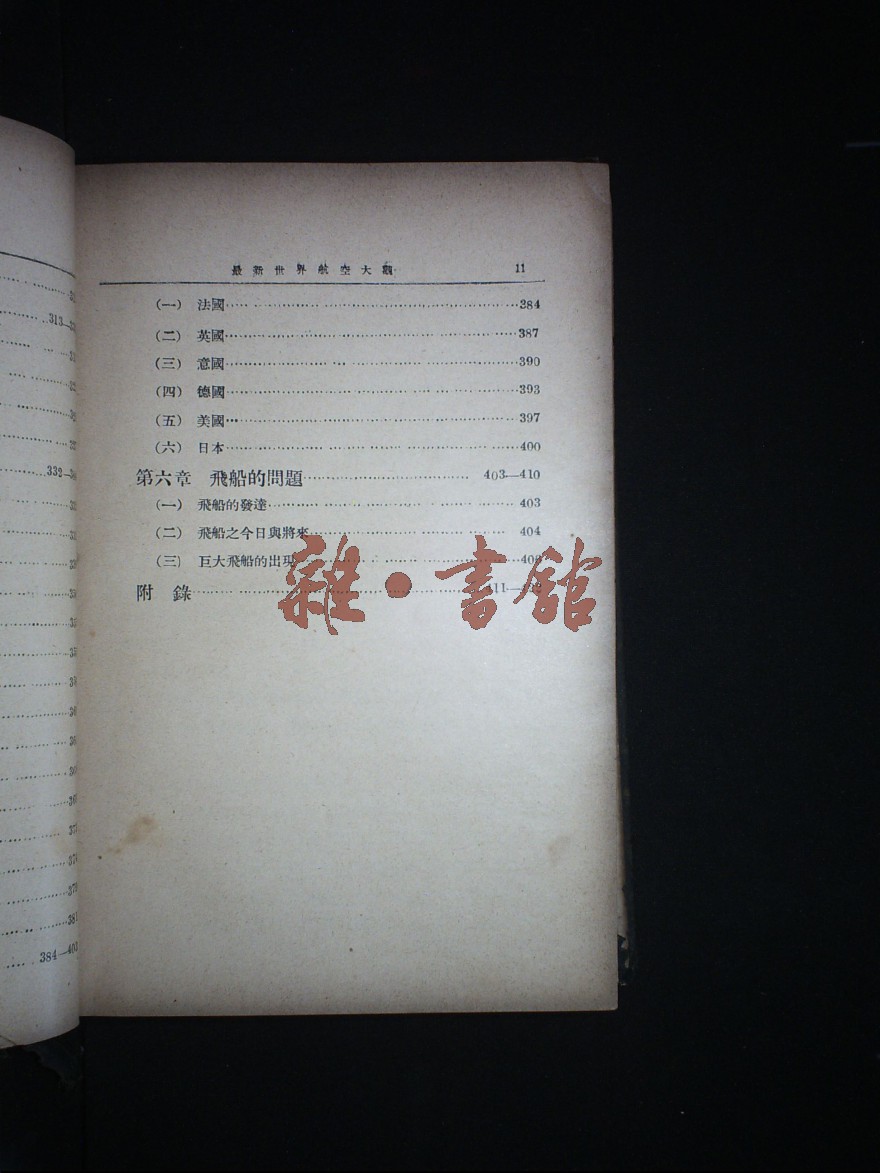 313—
332—
374
379
381
384—403
最新世界航空大觀 11
(一) 法國 384
(二) 英國 387
(三) 意國 390
(四) 德國 393
(五) 美國 397
(六) 日本 400
第六章 飛船的問題 403—410
(一) 飛船的發達 403
(二) 飛船之今日與將來 404
(三) 巨大飛船的出現
附錄
雜·書館